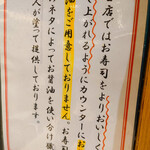 店ではお寿司をよりおいし
く上がれるようにカウンターにお
油をご用意しておりません。お寿司
のネタによってお醤油を使い分け職
人が塗って提供しております。